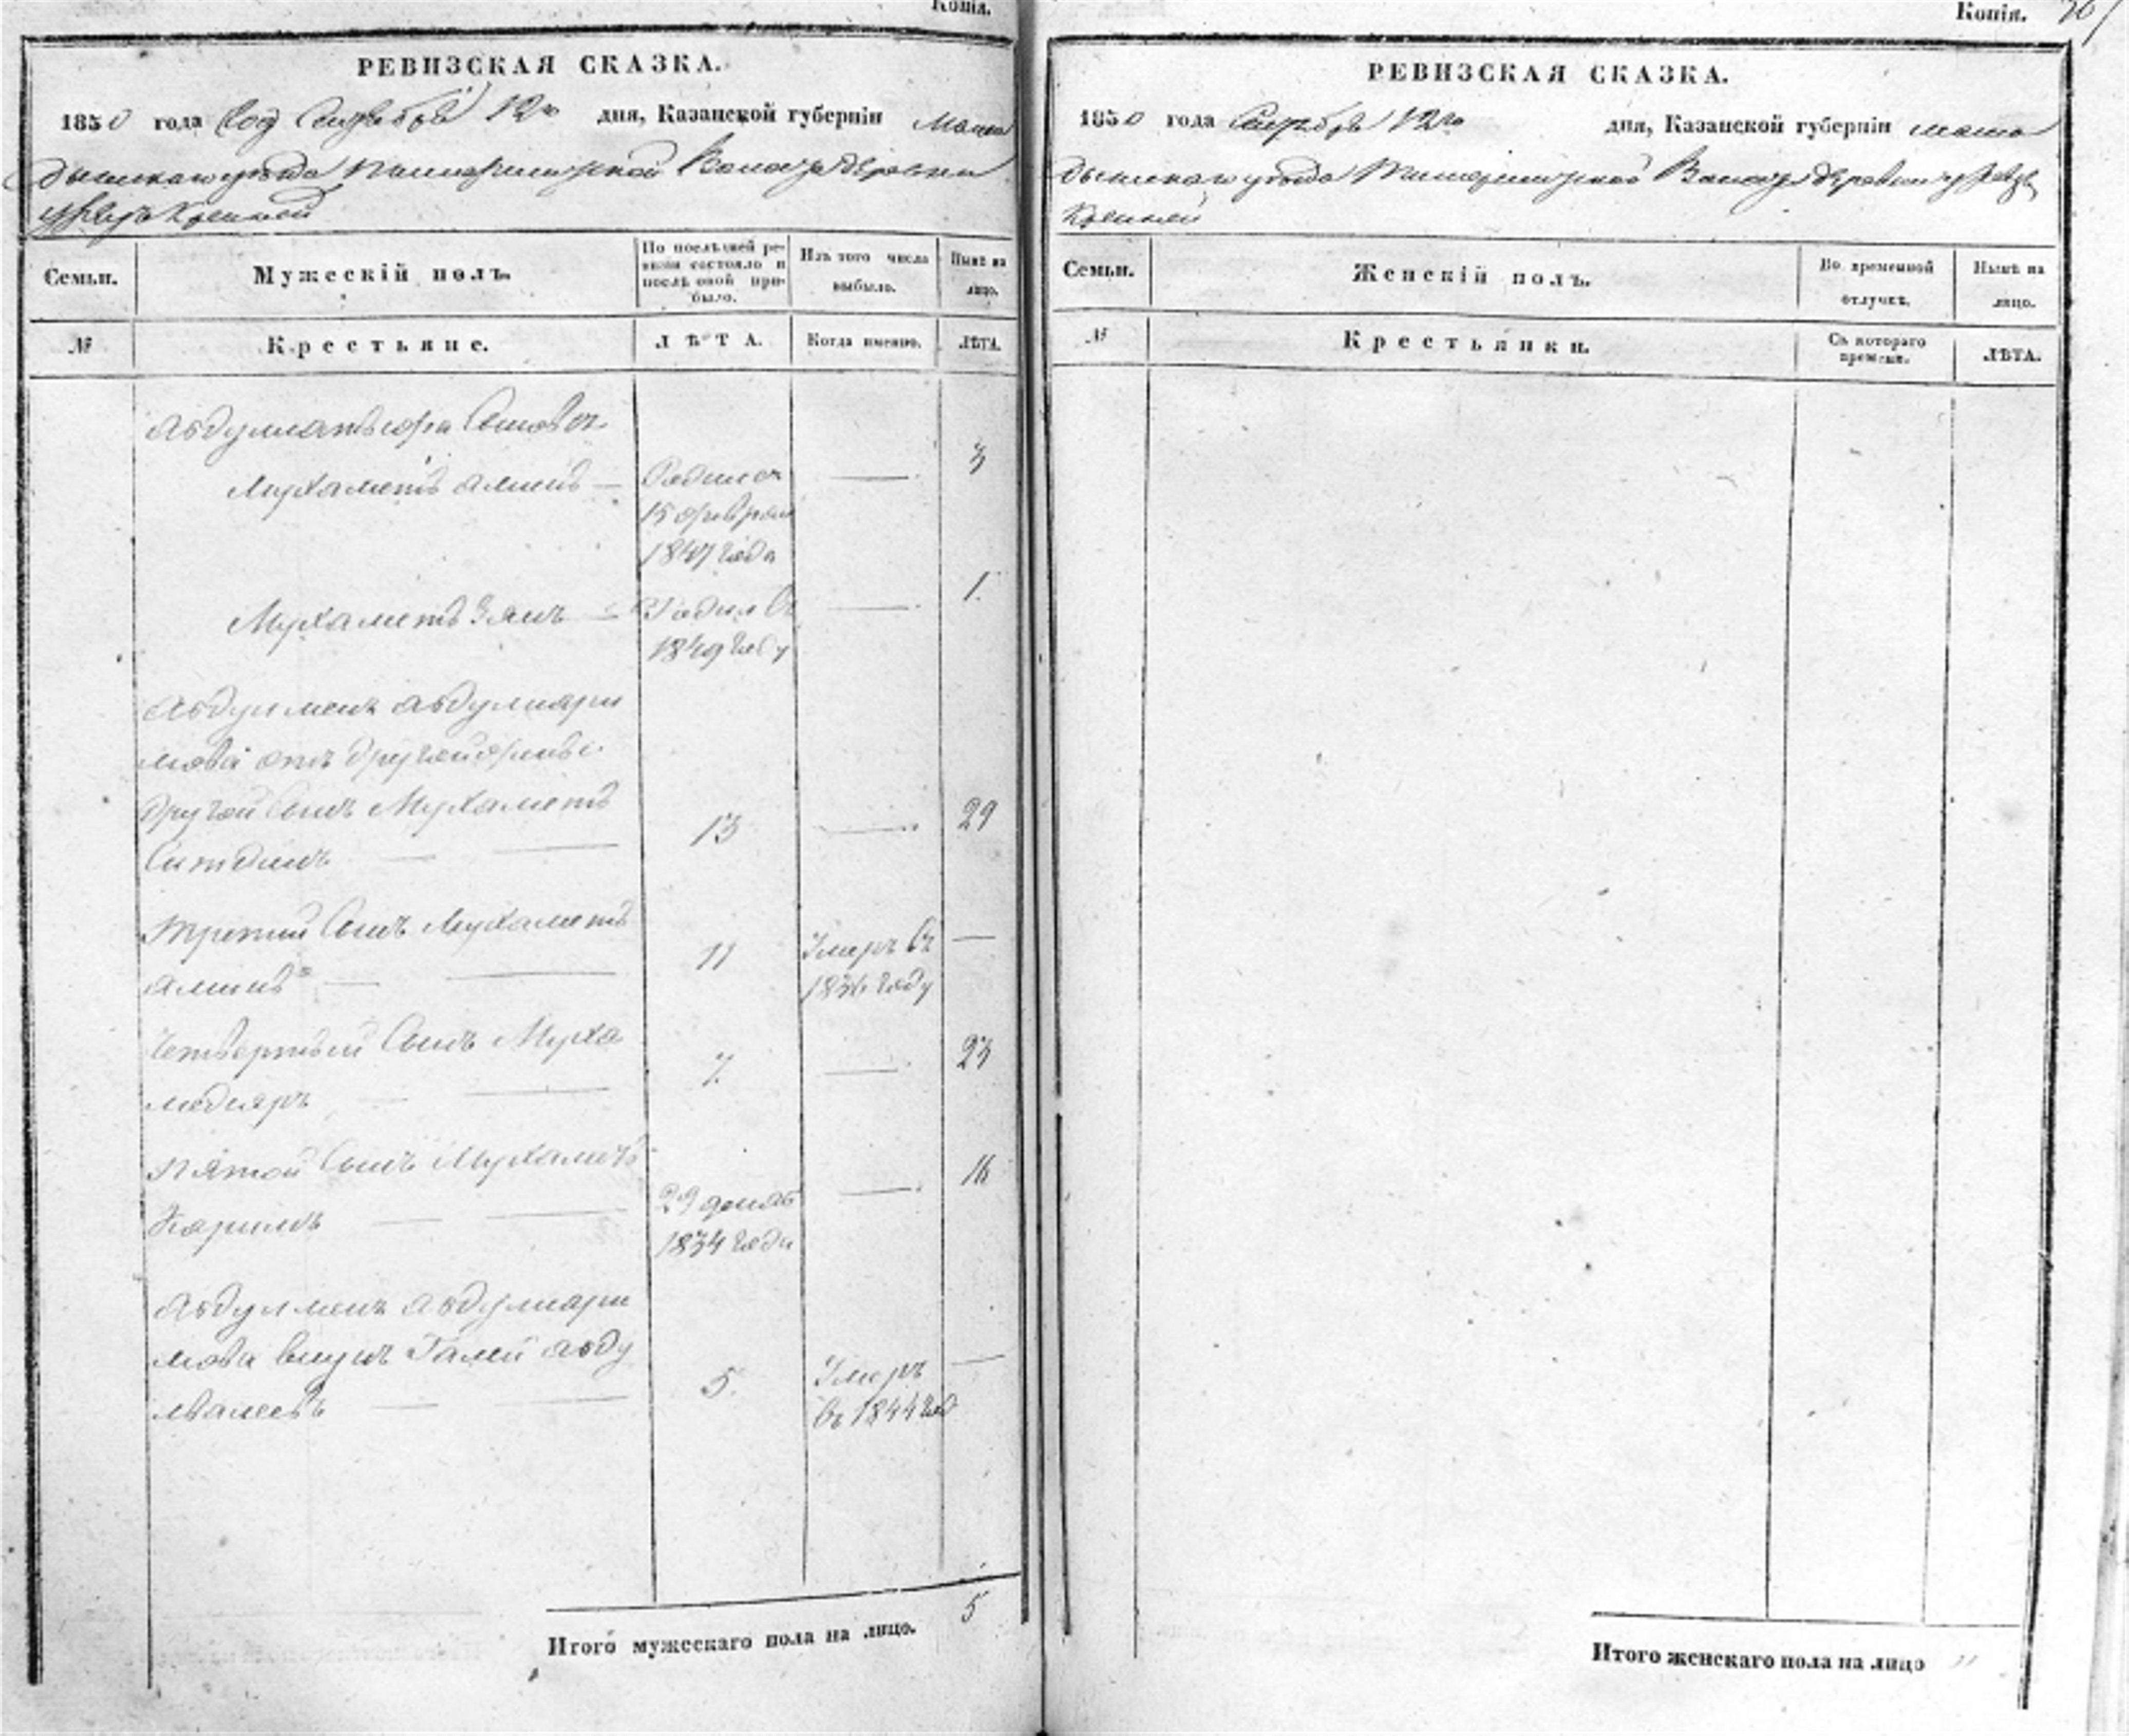 Копія.
РЕВИЗСКАЯ СКАЗКА.
1850 года Сентября 12го дня, Казанской губерніи Мама
дышскаго уѣзда Волости деревни
Семьи.
Мужескій полъ.
По послѣдней ре-
визіи состояло и
послѣ оной при-
было.
Изъ того числа
выбыло.
Нынѣ на
лицо.
№
Крестьяне.
ЛѢТА.
Когда именно.
ЛѢТА.
Сыновья
Мухаметъ Аминъ — Родился — 3
15 февраля
1847 года
Мухаметъ Зянъ — Родил въ — 1.
1849 году
Абдулменъ Абдулкари
мова отъ другой жены
другой сынъ Мухаметъ 13 — 29
Ситдикъ
Третий сынъ Мухаметъ 11 Умеръ въ —
Аминъ — 1836 году
Четвертый сынъ Муха 7. — 23
медияръ
Пятой сынъ Мухаметъ — 16
Каримъ — 29
1834 года
Абдулменъ Абдулкари
мова внукъ Галей Абду 5. Умеръ —
въ 1844 год
Итого мужескаго пола на лицо. 5
Копія.
РЕВИЗСКАЯ СКАЗКА.
1850 года Сентября 12го дня, Казанской губерніи мама
дышскаго уѣзда Волости деревни
Семьи.
Женскій полъ.
Во временной
отлучкѣ.
Нынѣ на
лицо.
№
Крестьянки.
Съ котораго
времени.
ЛѢТА.
Итого женскаго пола на лицо "